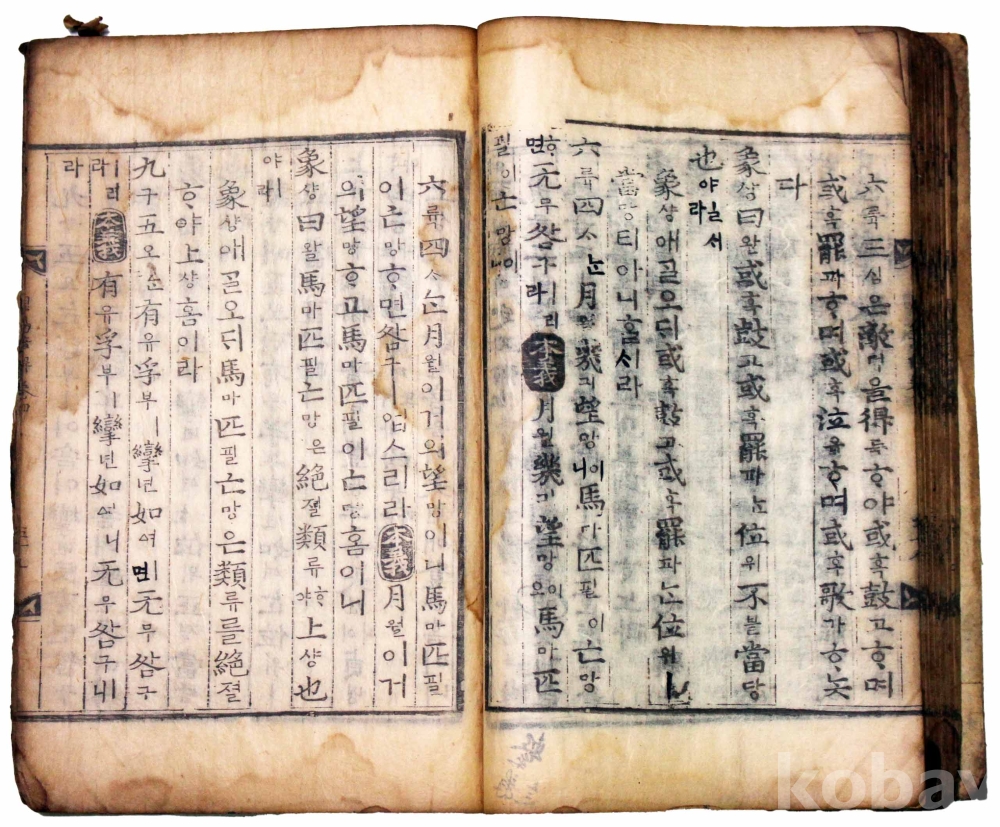 六륙三삼은敵뎍을得득ᄒᆞ야或혹鼓고ᄒᆞ며
或혹罷파ᄒᆞ며或혹泣읍ᄒᆞ며或혹歌가ᄒᆞᄂᆞᆺ
다
象샹曰왈或혹鼓고或혹罷파ᄂᆞᆫ位위不블當당
也야ㅣ일서라
象샹애ᄀᆞᆯ오ᄃᆡ或혹鼓고或혹罷파ᄂᆞᆫ位위ㅣ
當당티아니ᄒᆞᆯᄉᆡ라
六륙四ᄉᆞᄂᆞᆫ月월幾긔望망이니馬마匹필이亡망
ᄒᆞ면无무咎구ㅣ리라本義月월幾긔望망이오馬마匹
필이亡망이니
六륙四ᄉᆞᄂᆞᆫ月월이거의望망이니馬마匹필
이亡망ᄒᆞ면咎구ㅣ업스리라本義月월이거
의望망ᄒᆞ고馬마匹필이亡망홈이니
象샹曰왈馬마匹필亡망은絶졀類류ᄒᆞ야上샹也
야ㅣ라
象샹애ᄀᆞᆯ오ᄃᆡ馬마匹필亡망은類류를絶졀
ᄒᆞ야上샹홈이라
九구五오ᄂᆞᆫ有유孚부ㅣ攣년如여면无무咎구
ㅣ리라本義有유孚부ㅣ攣년如여니无무咎구ㅣ니
라
kobay